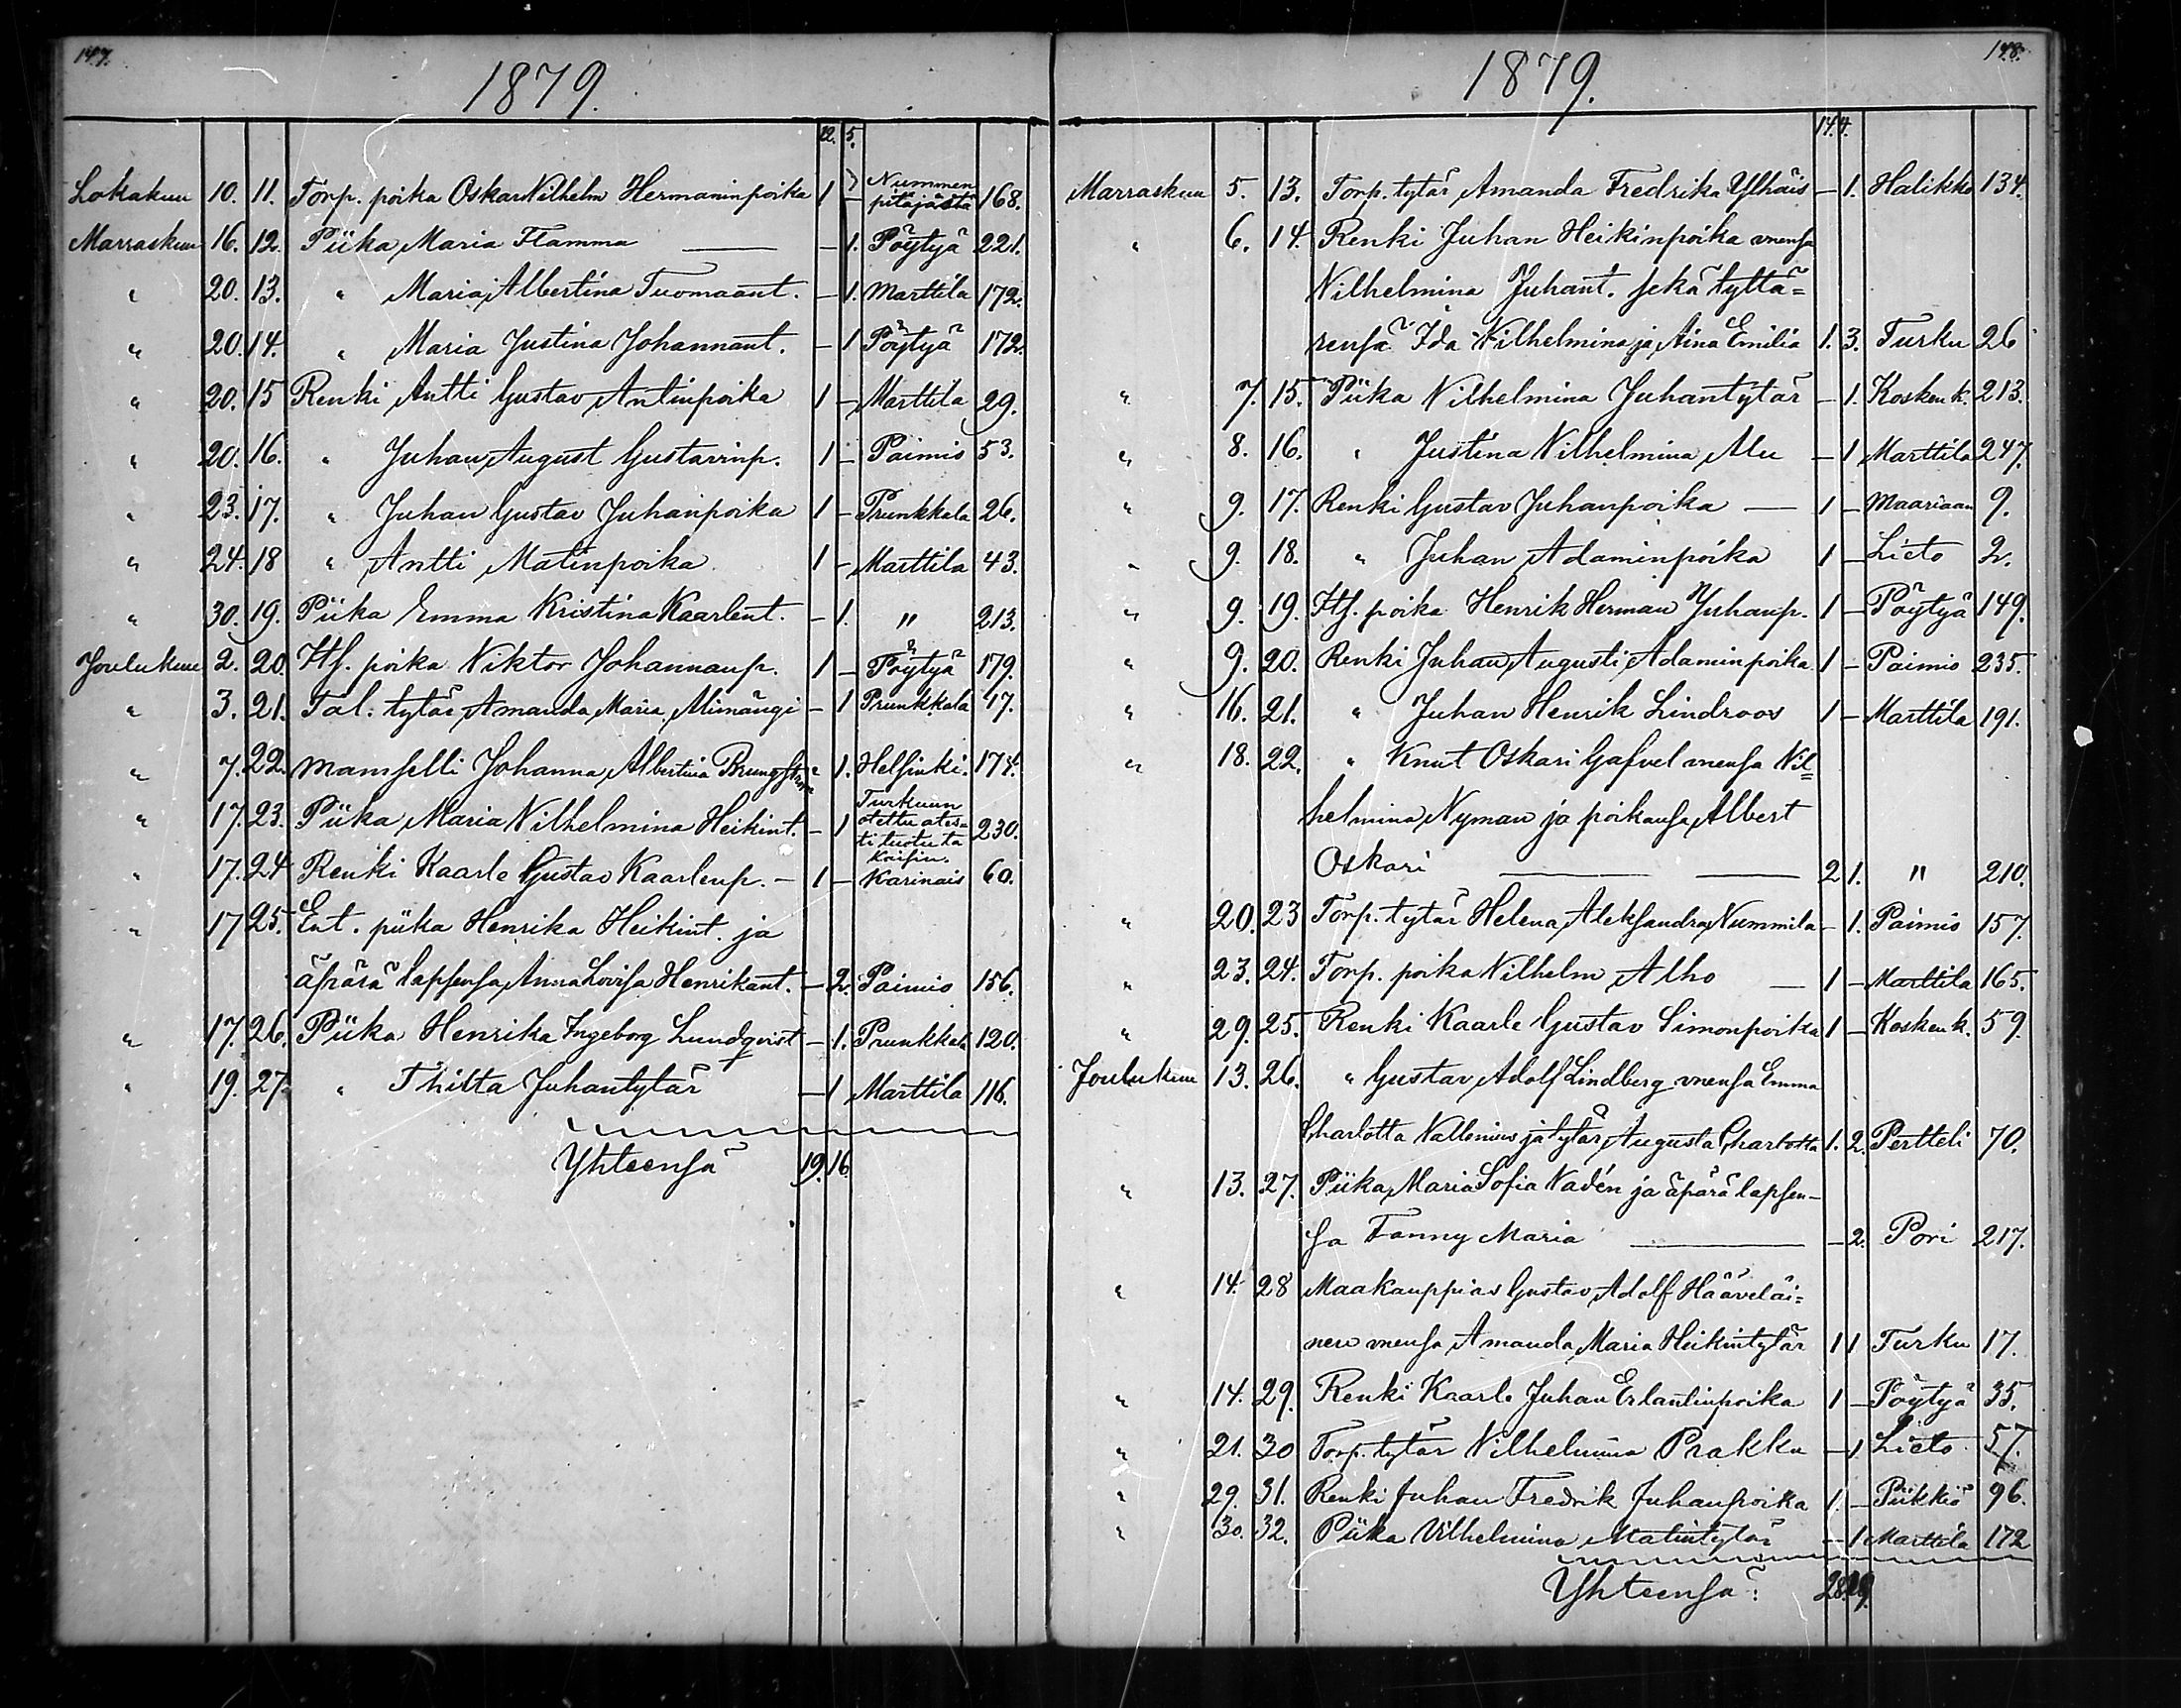 147.
1879.
12. 5.
Lokakuu 10. 11. Torp. poika Oskar Wilhelm Hermaninpoika 1 – Nummen pitäjästä 168.
Marraskuu 16. 12. Piika Maria Flamma — – 1. Pöytyä 221.
" 20. 13. " Maria Albertina Tuomaant. – 1. Marttila 172.
" 20. 14. " Maria Justina Johannant. – 1 Pöytyä 172.
" 20. 15 Renki Antti Gustav Antinpoika 1 – Marttila 29.
" 20. 16. " Juhan August Gustavinp. 1 – Paimio 53.
" 23. 17. " Juhan Gustav Juhanpoika 1 – Prunkkala 26.
" 24. 18 " Antti Matinpoika 1 – Marttila 43.
" 30. 19. Piika Emma Kristina Kaarlent. – 1. " 213.
Joulukuu 2. 20. Itf. poika Viktor Johannanp. 1 – Pöytyä 179.
" 3. 21. Tal. tytär Amanda Maria Alimängi – 1 Prunkkala 17.
" 7. 22. Mamselli Johanna Albertina – 1. Helsinki. 174.
" 17. 23. Piika Maria Wilhelmina Heikint. – 1 Turkuun otettu ates- ti tuotu ta kaisin. 230.
" 17. 24 Renki Kaarle Gustav Kaarlenp. – 1 – Karinais 60.
" 17 25. Ent. piika Henrika Heikint. ja
äpärä lapsensa Anna Lovisa Henrikant. – 2. Paimio 156.
" 17. 26. Piika Henrika Ingeborg Lundqvist – 1. Prunkkala 120.
" 19. 27. " Thilta Juhantytär – 1 Marttila 116.
Yhteensä 19. 16
148.
1879.
14. 4.
Marraskuu 5. 13. Torp. tytär Amanda Fredrika Ylhäis – 1. Halikko 134.
" 6. 14. Renki Juhan Heikinpoika vnensa
Wilhelmina Juhant. sekä tyttä=
rensä Ida Wilhelmina ja Aina Emilia 1. 3. Turku 26
" 7. 15. Piika Wilhelmina Juhantytär – 1. Kosken k. 213.
" 8. 16. " Justina Wilhelmina Alu – 1 Marttila 247.
" 9. 17. Renki Gustav Juhanpoika — 1 – Maariaan 9.
" 9. 18. " Juhan Adaminpoika 1 – Lieto 2.
" 9. 19. Itf. poika Henrik Herman Juhanp. 1 – Pöytyä 149.
" 9. 20. Renki Juhan Augusti Adaminpoika 1 – Paimio 235.
" 16. 21. " Juhan Henrik Lindroos 1 – Marttila 191.
" 18. 22. " Knut Oskari Gafvel vnensa Wil=
helmina Nyman ja poikansa Albert
Oskari — — 2 1. " 210.
" 20. 23 Torp. tytär Helena Aleksandra Nummila – 1. Paimio 157.
" 23. 24. Torp. poika Wilhelm Alho — 1 – Marttila 165.
" 29. 25. Renki Kaarle Gustav Simonpoika 1 – Kosken k. 59.
Joulukuu 13. 26. " Gustav Adolf Lindberg vnensa Emma
Charlotta Vallenius ja tytär Augusta Charlotta 1. 2. Pertteli 70.
" 13. 27. Piika Maria Sofia Nadén ja äpärä lapsen-
sa Fanny Maria — – 2. Pori 217.
" 14. 28 Maakauppias Gustav Adolf Hääveläi=
nen vnensa Amanda Maria Heikintytär 1 1 Turku 17.
" 14. 29. Renki Kaarle Juhan Erlantinpoika 1 – Pöytyä 35.
" 21. 30 Torp. tytär Wilhelmina Prakku – 1 Lieto 57.
" 29. 31. Renki Juhan Fredrik Juhanpoika 1. – Piikkiö 96.
" 30. 32. Piika Vilhelmina Matintytär – 1 Marttila 172
Yhteensä: 28.